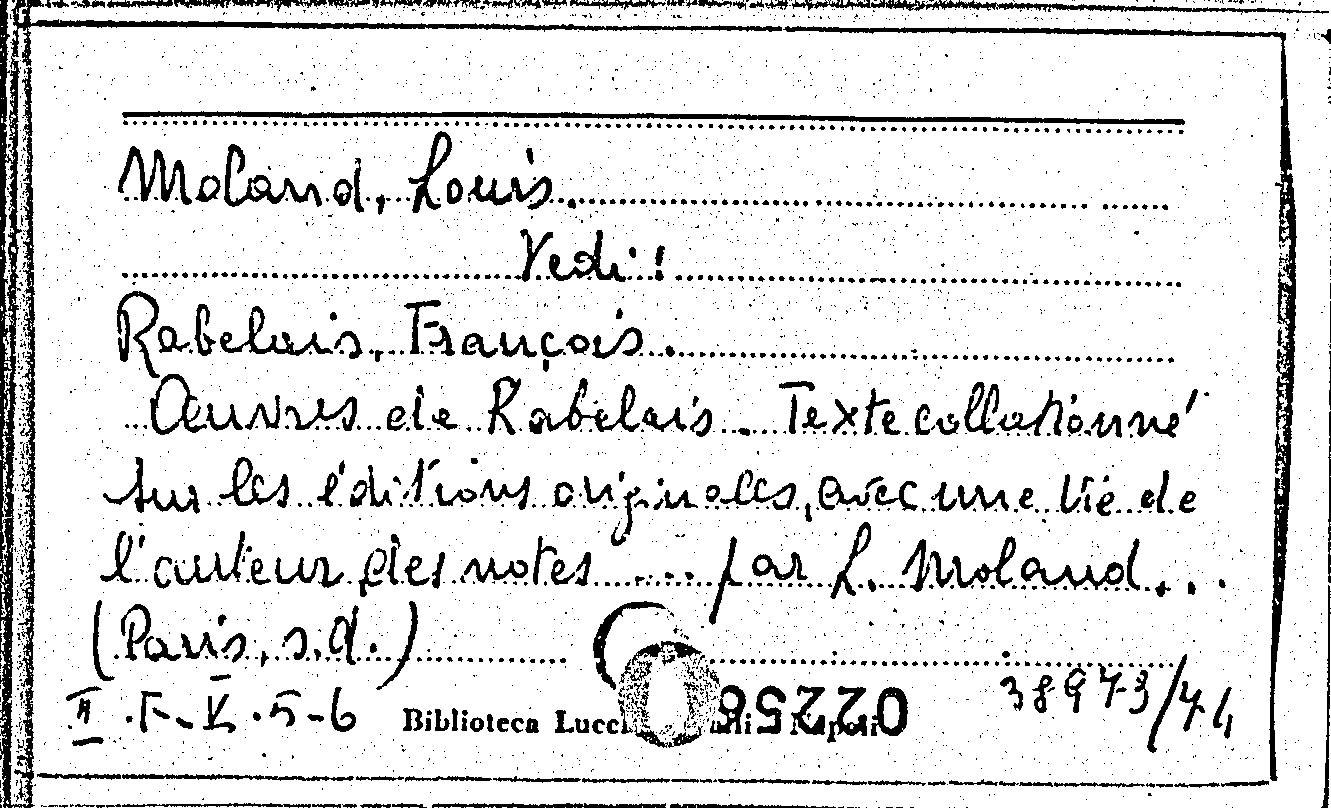 Moland, Louis.
Vedi:
Rabelais, François.
Œuvres de Rabelais. Texte collationné
sur les éditions originales, avec une vie de
l'auteur, des notes .... par L. Moland...
(Paris, s.d.)
38973/
Biblioteca 022256